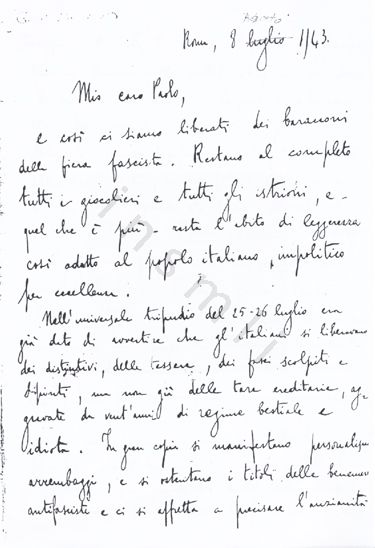 Roma, 8 luglio 1943.
Mio caro Paolo,
e così ci siamo liberati dei baracconi
della fiera fascista. Restano al completo
tutti i giocolieri e tutti gli istrioni, e -
quel che è più - resta l'abito di leggerezza
così adatto al popolo italiano, impolitico
per eccellenza.
Nell'universale tripudio del 25-26 luglio era
già dato di avvertire che gl'italiani si liberavano
dei distintivi, delle tessere, dei fasci scolpiti e
dipinti, ma non già delle tare ereditarie, ag-
gravate da vent'anni di regime bestiale e
idiota. In gran copia si manifestano
arrembaggi, e si ostentano i titoli delle
antifasciste e ci si affretta a precisare l'anzianità
insmli